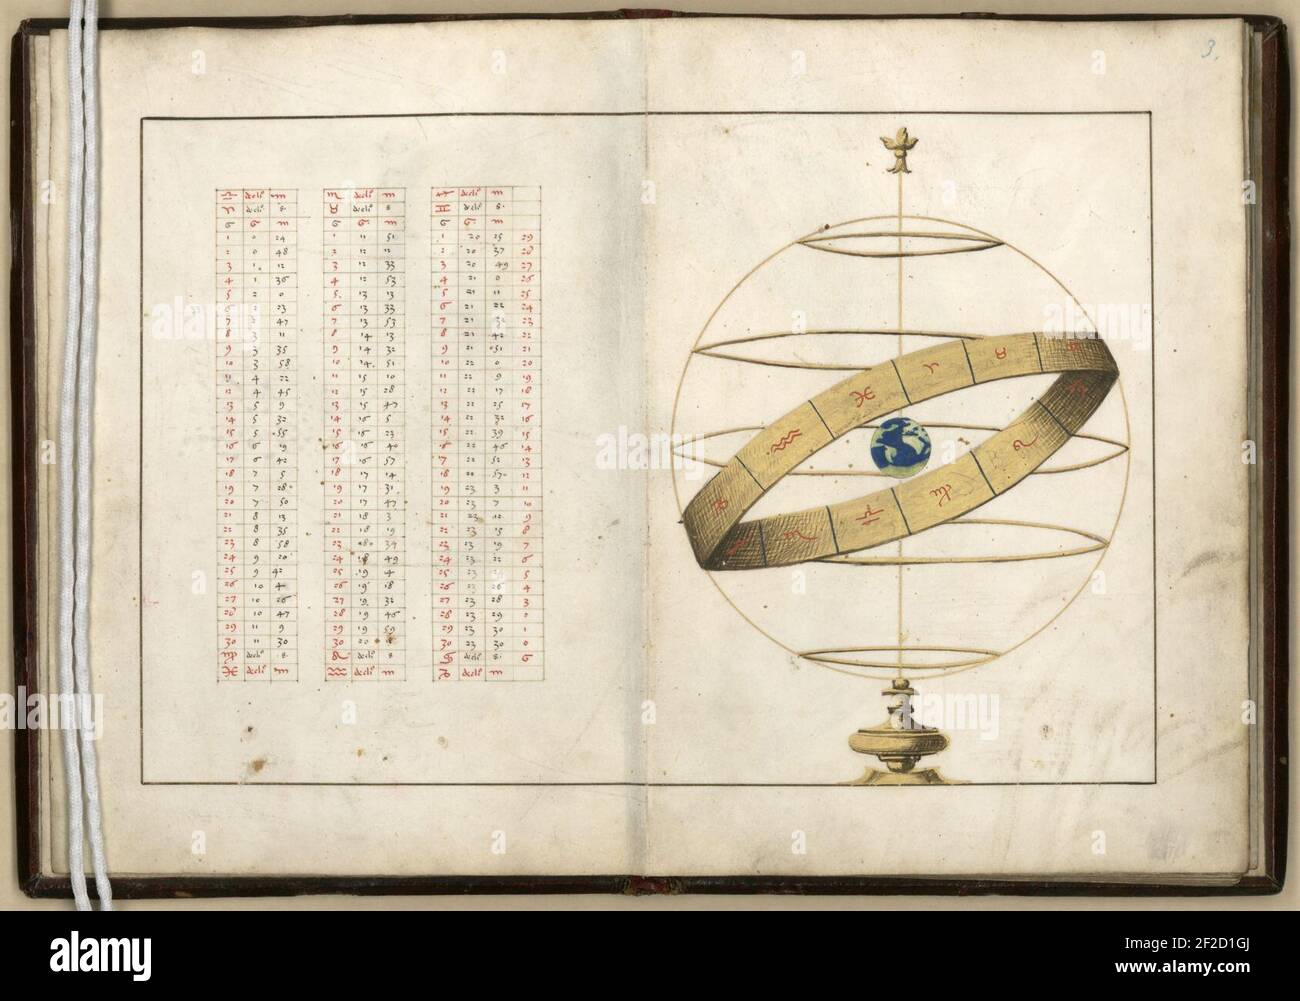 3.
♎ decli° m
♈ decli° 8.
G G m
1 0 24
2 0 48
3 1 12
4 1 36
5 2 0
6 2 23
7 2 47
8 3 11
9 3 35
10 3 58
11 4 22
12 4 45
13 5 9
14 5 32
15 5 55
16 6 19
17 6 42
18 7 5
19 7 28
20 7 50
21 8 13
22 8 35
23 8 58
24 9 20
25 9 42
26 10 4
27 10 26
28 10 47
29 11 9
30 11 30
♍ decli° 8.
♓ decli° m
♏ decli° m
♉ decli° 8
G G m
1 11 51
2 12 12
3 12 33
4 12 53
5. 13 13
6 13 33
7 13 53
8 14 13
9 14 32
10 14. 51
11 15 10
12 15 28
13 15 47
14 16 5
15 16 23
16 16 40
17 16 57
18 17 14
19 17 31
20 17 47
21 18 3
22 18 19
23 34
24 18 49
25 19 4
26 19 18
27 19. 32
28 19 46
29 19 59
30 20
♌ decli° 8
♒ decli° m
♐ decli° m
♊ decli° 8.
G G m
1 20 25 29
2 20 37 28
3 20 49 27
4 21 0 26
5 21 11 25
6 21 22 24
7 21 32 23
8 21 42 22
9 21 51 21
10 22 0 20
11 22 9 19
12 22 17 18
13 22 25 17
14 22 32 16
15 22 39 15
16 22 46 14
17 22 52 13
18 12
19 23 3 11
20 23 7 10
21 23 12 9
22 23 8
23 23 19 7
24 23 22 6
25 23 5
26 23 26 4
27 23 28 3
28 23 29 2
29 23 30 1
30 23 30 0
♋ decli° 8. G
♑ decli° m
♉ ♈ ♓ ♒
♌ ♍ ♎ ♏